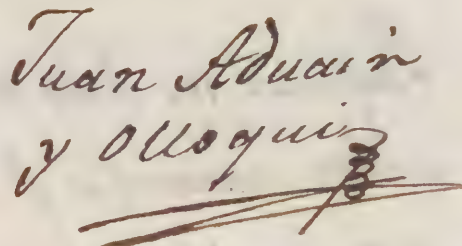 Juan Aduain
y Olloqui